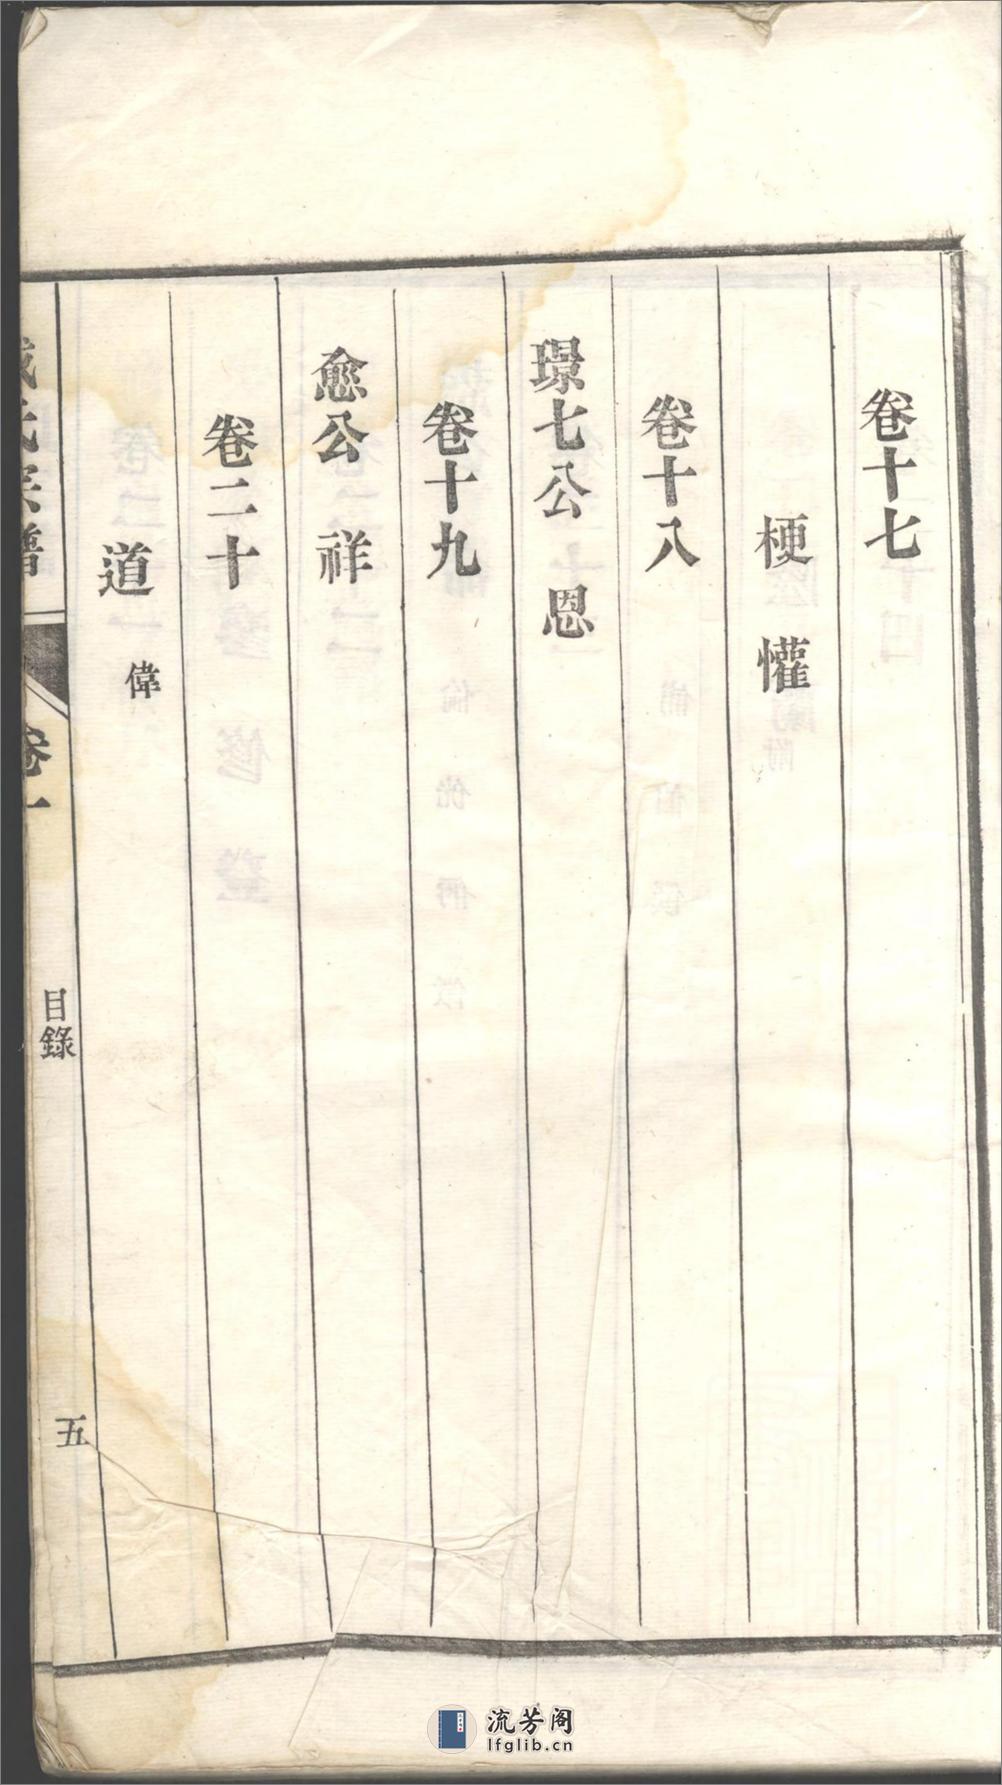 卷十七
梗 懽
卷十八
璟七公 恩
卷十九
愈公 祥
卷二十
道 偉
氏宗譜 卷一 目錄 五
流芳阁
lfglib.cn